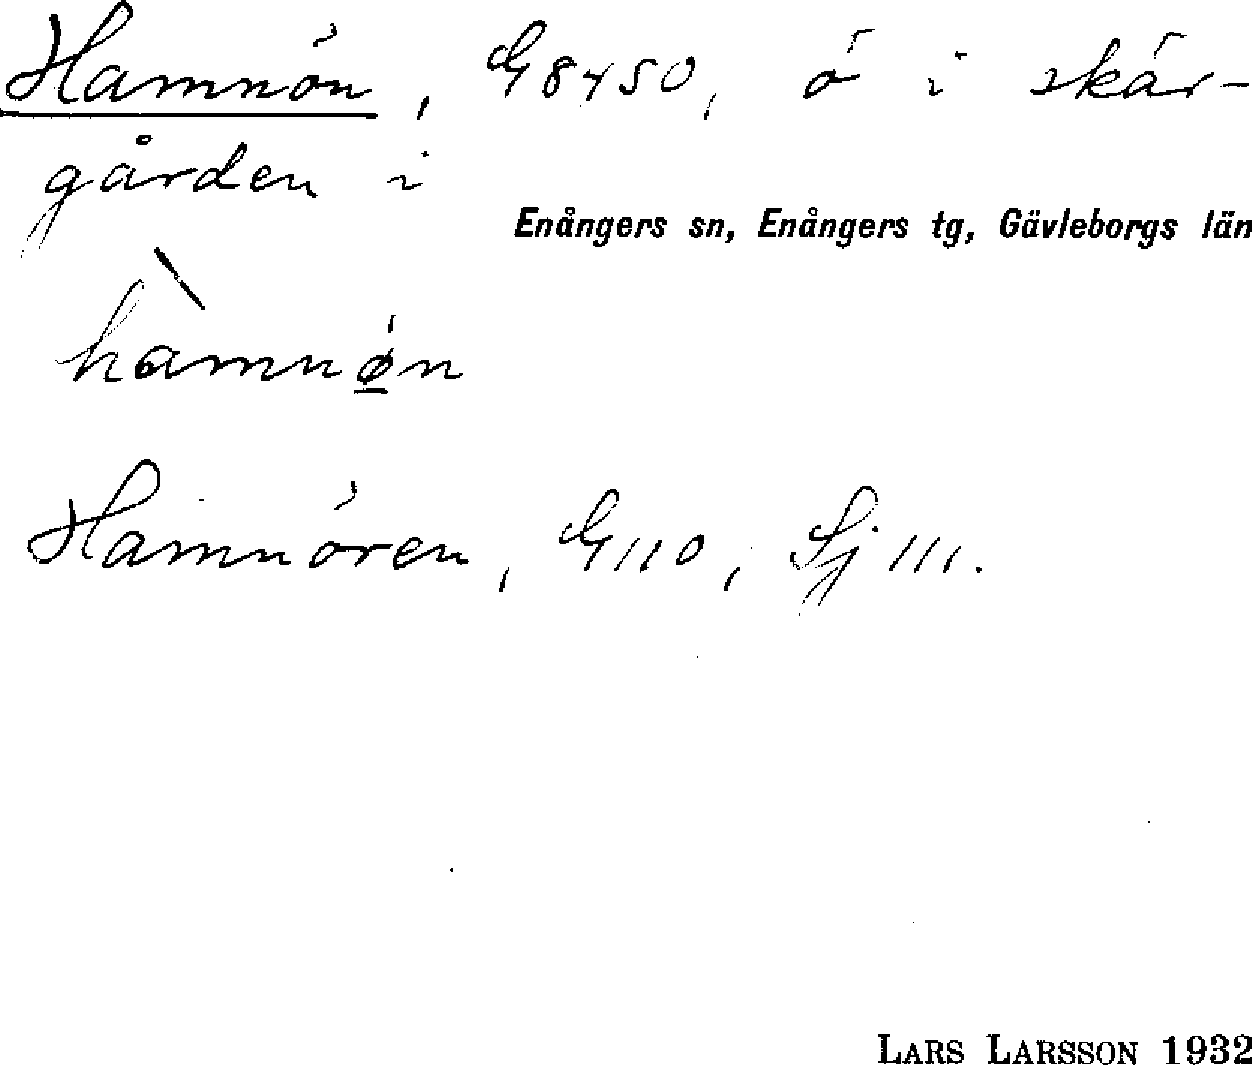 Hamnön, G8450, ö i skär-
gården i
Enångers sn, Enångers tg, Gävleborgs län
hàmnǿ̲n
Hamnören, G110, Sj 111.
LARS LARSSON 1932